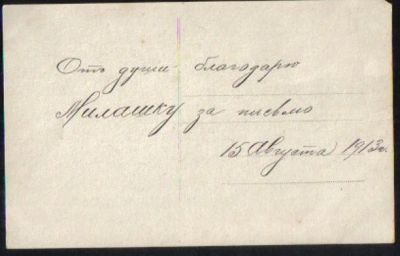 Отъ души благодарю
Милашку за письмо
15 Августа 1913г.